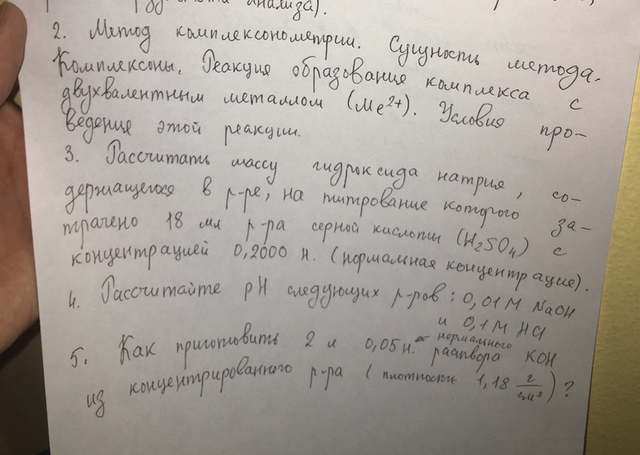 анализа).
2. Метод комплексонометрии. Сущность метода.
Комплексоны. Реакция образование комплекса с
двухвалентным металлом (Me²⁺). Условия про-
ведение этой реакции.
3. Рассчитать массу гидроксида натрия, со-
держащегося в р-ре, на титрование которого за-
трачено 18 мл р-ра серной кислоты (H₂SO₄) с
концентрацией 0,2000 н. (нормальная концентрацие).
4. Рассчитайте pH следующих р-ров: 0,01 M NaOH
и 0,1 M HCl
5. Как приготовить 2 л 0,05 н. нормального раствора KOH
из концентрированного р-ра (плотность 1,18 г/см³)?